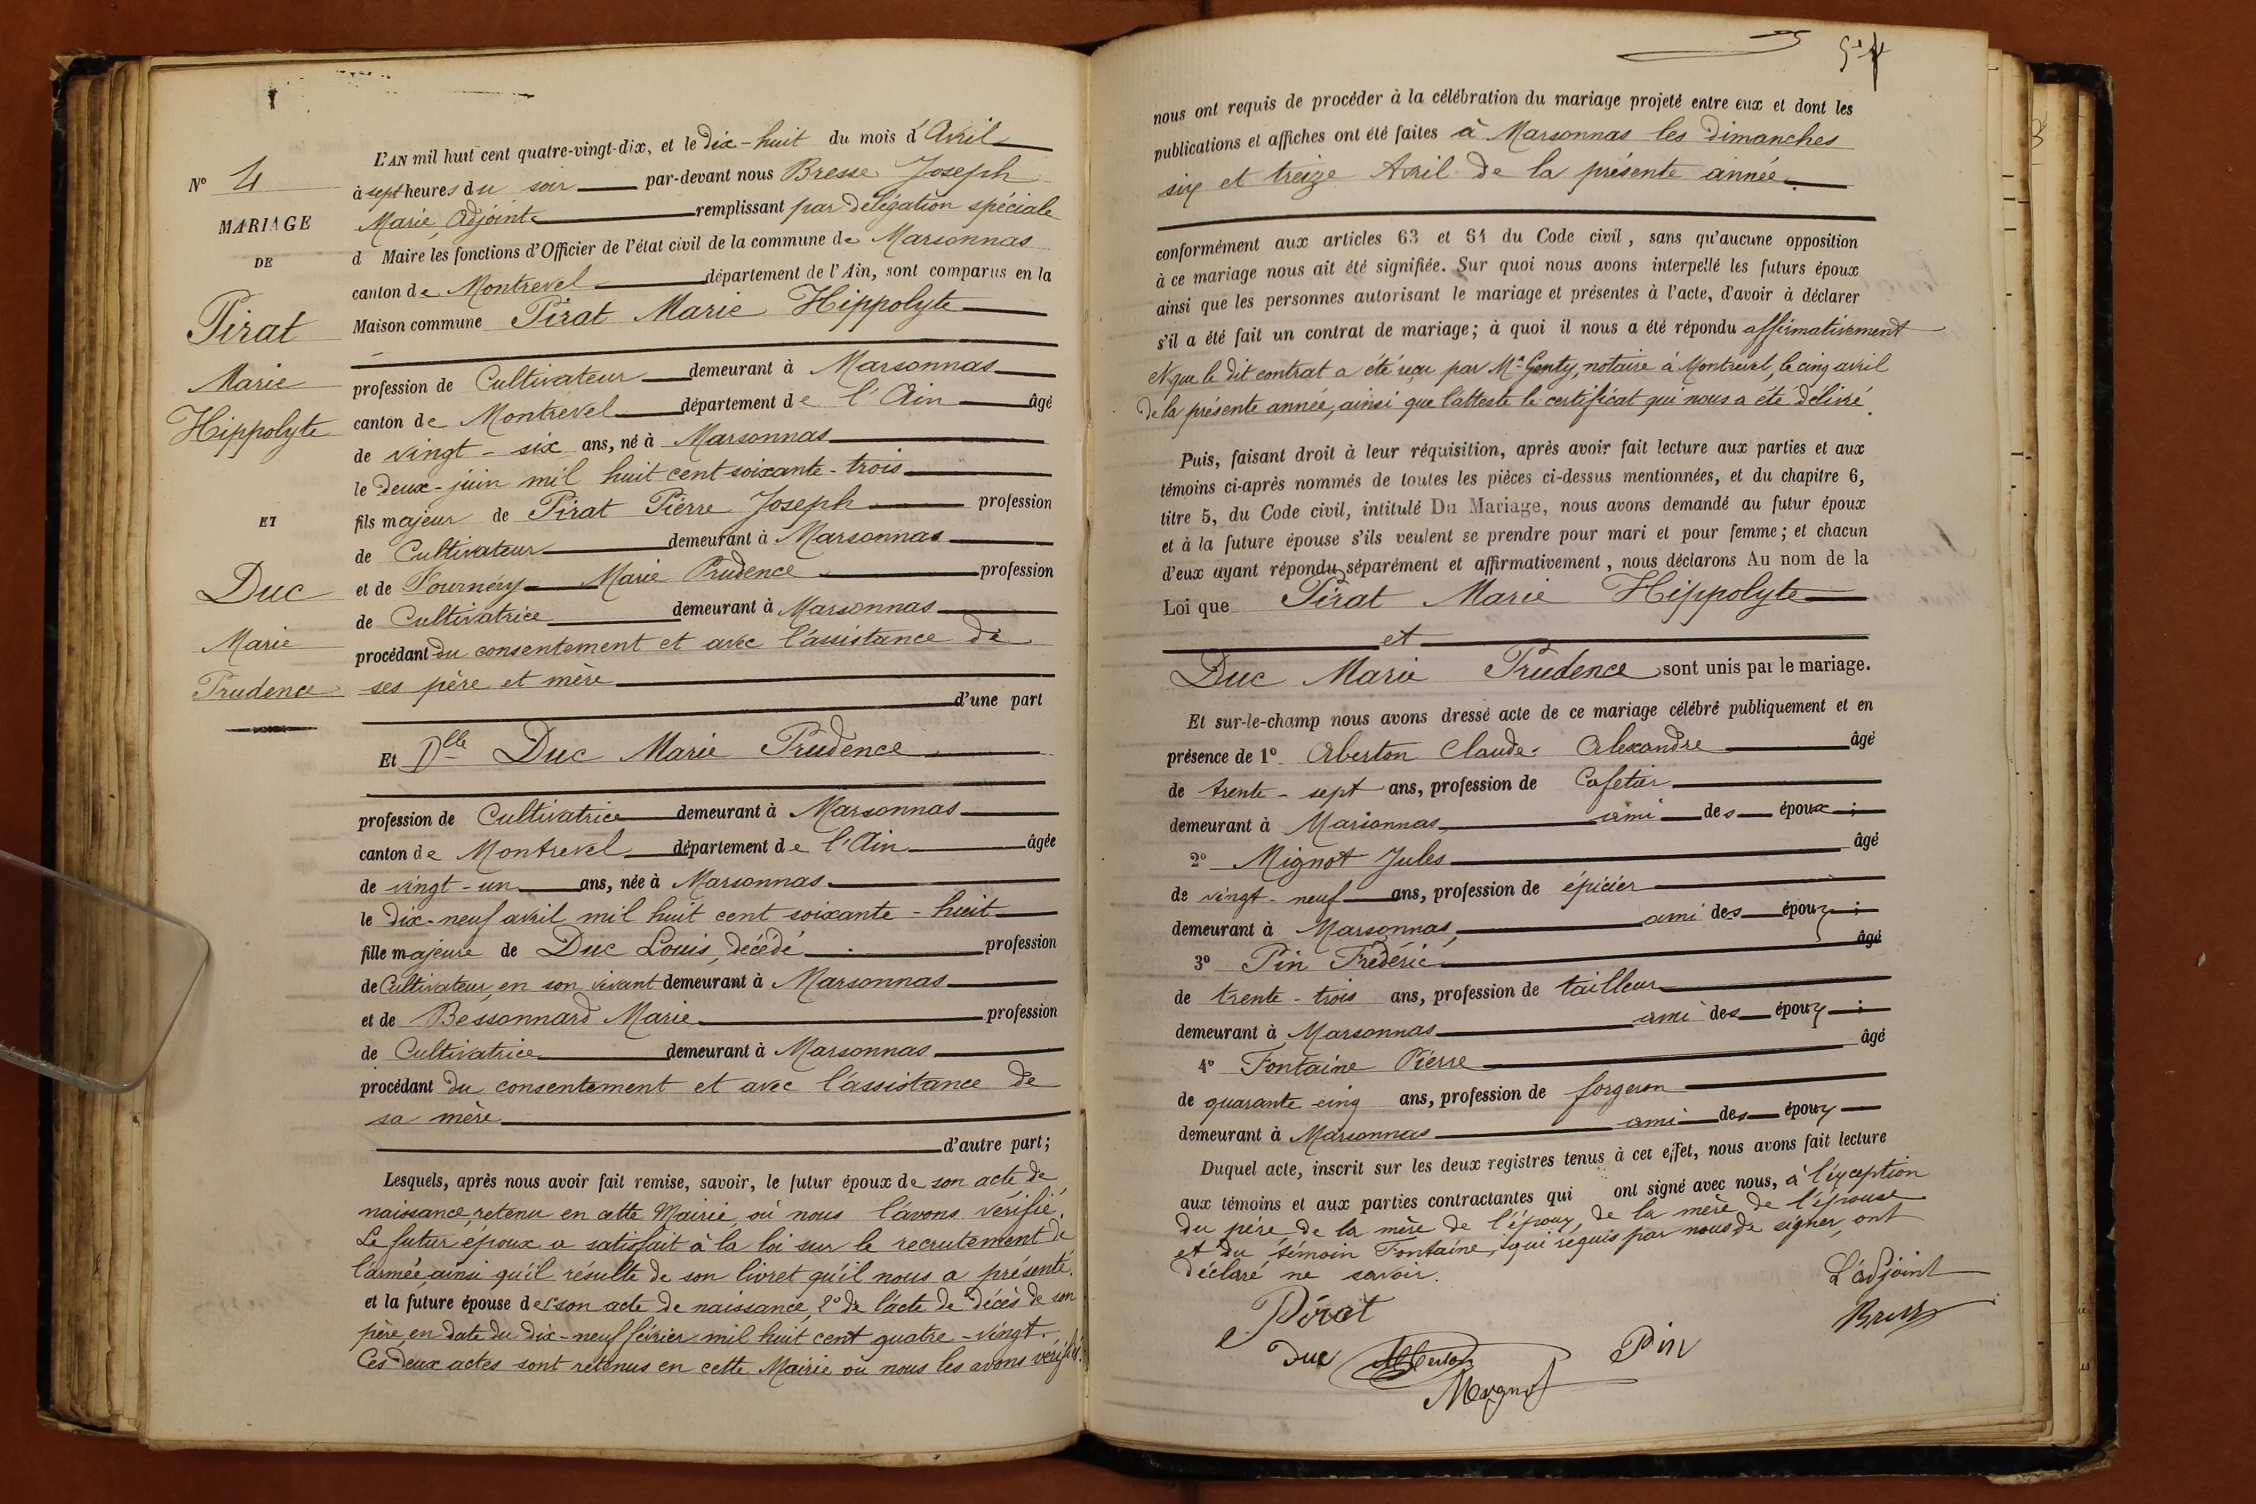 L'AN mil huit cent quatre-vingt-dix, et le dix-huit du mois d'Avril
N° 4
à sept heures du soir par-devant nous Bresse Joseph
MARIAGE
Marie, Adjoint remplissant par délégation spéciale
DE
d Maire les fonctions d'Officier de l'état civil de la commune de Marsonnas
canton de Montrevel département de l'Ain, sont comparus en la
Pirat
Maison commune Pirat Marie Hippolyte
Marie
profession de Cultivateur demeurant à Marsonnas
Hippolyte
canton de Montrevel département de l'Ain âgé
de vingt-six ans, né à Marsonnas
le deux juin mil huit cent soixante-trois
ET
fils majeur de Pirat Pierre Joseph profession
de Cultivateur demeurant à Marsonnas
Duc
et de Fournery Marie Prudence profession
de Cultivatrice demeurant à Marsonnas
Marie
procédant du consentement et avec l'assistance de
Prudence
ses père et mère
d'une part
Et Dlle Duc Marie Prudence
profession de Cultivatrice demeurant à Marsonnas
canton de Montrevel département de l'Ain âgée
de vingt-un ans, née à Marsonnas
le dix-neuf avril mil huit cent soixante-huit
fille majeure de Duc Louis, décédé profession
de Cultivateur en son vivant demeurant à Marsonnas
et de Bessonnard Marie profession
de Cultivatrice demeurant à Marsonnas
procédant du consentement et avec l'assistance de
sa mère
d'autre part;
Lesquels, après nous avoir fait remise, savoir, le futur époux de son acte de
naissance, retenu en cette Mairie où nous l'avons vérifié.
Le futur époux a satisfait à la loi sur le recrutement de
l'armée, ainsi qu'il résulte de son livret qu'il nous a présenté.
et la future épouse de son acte de naissance, 2° de l'acte de décès de son
père, en date du dix-neuf février mil huit cent quatre-vingt.
Ces deux actes sont retenus en cette Mairie où nous les avons vérifiés.
nous ont requis de procéder à la célébration du mariage projeté entre eux et dont les
publications et affiches ont été faites à Marsonnas les dimanches
six et treize Avril de la présente année.
conformément aux articles 63 et 64 du Code civil, sans qu'aucune opposition
à ce mariage nous ait été signifiée. Sur quoi nous avons interpellé les futurs époux
ainsi que les personnes autorisant le mariage et présentes à l'acte, d'avoir à déclarer
s'il a été fait un contrat de mariage; à quoi il nous a été répondu affirmativement
et que le dit contrat a été reçu par Me Genty, notaire à Montrevel, le cinq avril
de la présente année, ainsi que l'atteste le certificat qui nous a été délivré.
Puis, faisant droit à leur réquisition, après avoir fait lecture aux parties et aux
témoins ci-après nommés de toutes les pièces ci-dessus mentionnées, et du chapitre 6,
titre 5, du Code civil, intitulé Du Mariage, nous avons demandé au futur époux
et à la future épouse s'ils veulent se prendre pour mari et pour femme; et chacun
d'eux ayant répondu séparément et affirmativement, nous déclarons Au nom de la
Loi que Pirat Marie Hippolyte
et
Duc Marie Prudence sont unis par le mariage.
Et sur-le-champ nous avons dressé acte de ce mariage célébré publiquement et en
présence de 1° Alberton Claude Alexandre âgé
de trente-sept ans, profession de Cafetier
demeurant à Marsonnas ami des époux;
2° Mignot Jules âgé
de vingt-neuf ans, profession de épicier
demeurant à Marsonnas, ami des époux;
3° Pin Frédéric âgé
de trente-trois ans, profession de tailleur
demeurant à Marsonnas ami des époux;
4° Fontaine Pierre âgé
de quarante-cinq ans, profession de forgeron
demeurant à Marsonnas ami des époux
Duquel acte, inscrit sur les deux registres tenus à cet effet, nous avons fait lecture
aux témoins et aux parties contractantes qui ont signé avec nous, à l'exception
du père de la mère de l'époux, de la mère de l'épouse
et du témoin Fontaine, qui requis par nous de signer, ont
déclaré ne savoir.
L'adjoint
Pirat
Duc Alberton Pin
Mignot